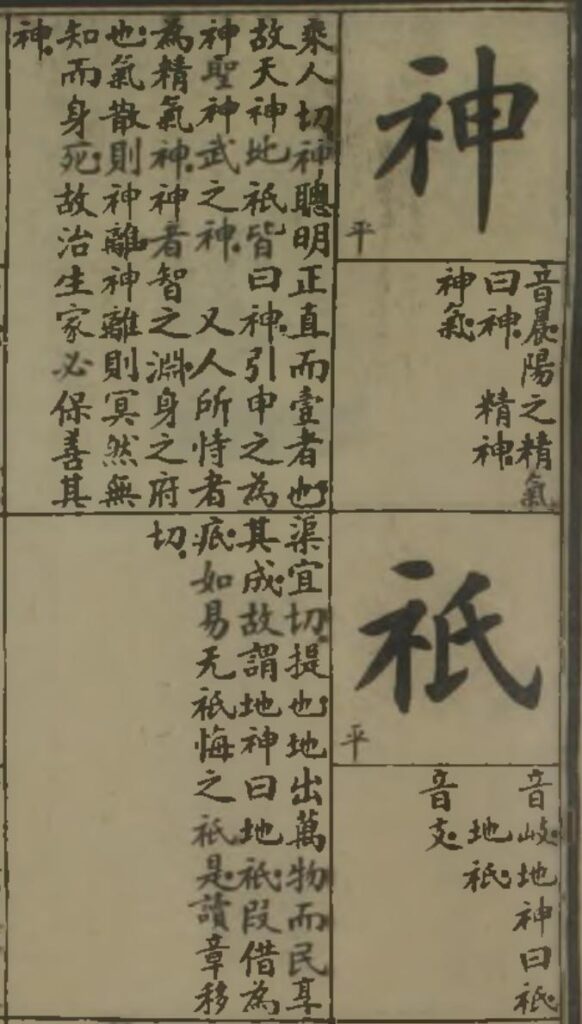 神
平
音晨陽之精氣
曰神 精神
神氣
乘人切神聰明正直而壹者也
故天神地祇皆曰神引申之為
神聖神武之神 又人所恃者
為精氣神神者智之淵身之府
也氣散則神離神離則冥然無
知而身死故治生家必保善其
神
祇
平
音歧地神曰祇
地祇
音支
渠宜切提也地出萬物而民享
其成故謂地神曰地祇叚借為
疧如易无祇悔之祇是讀章移
切